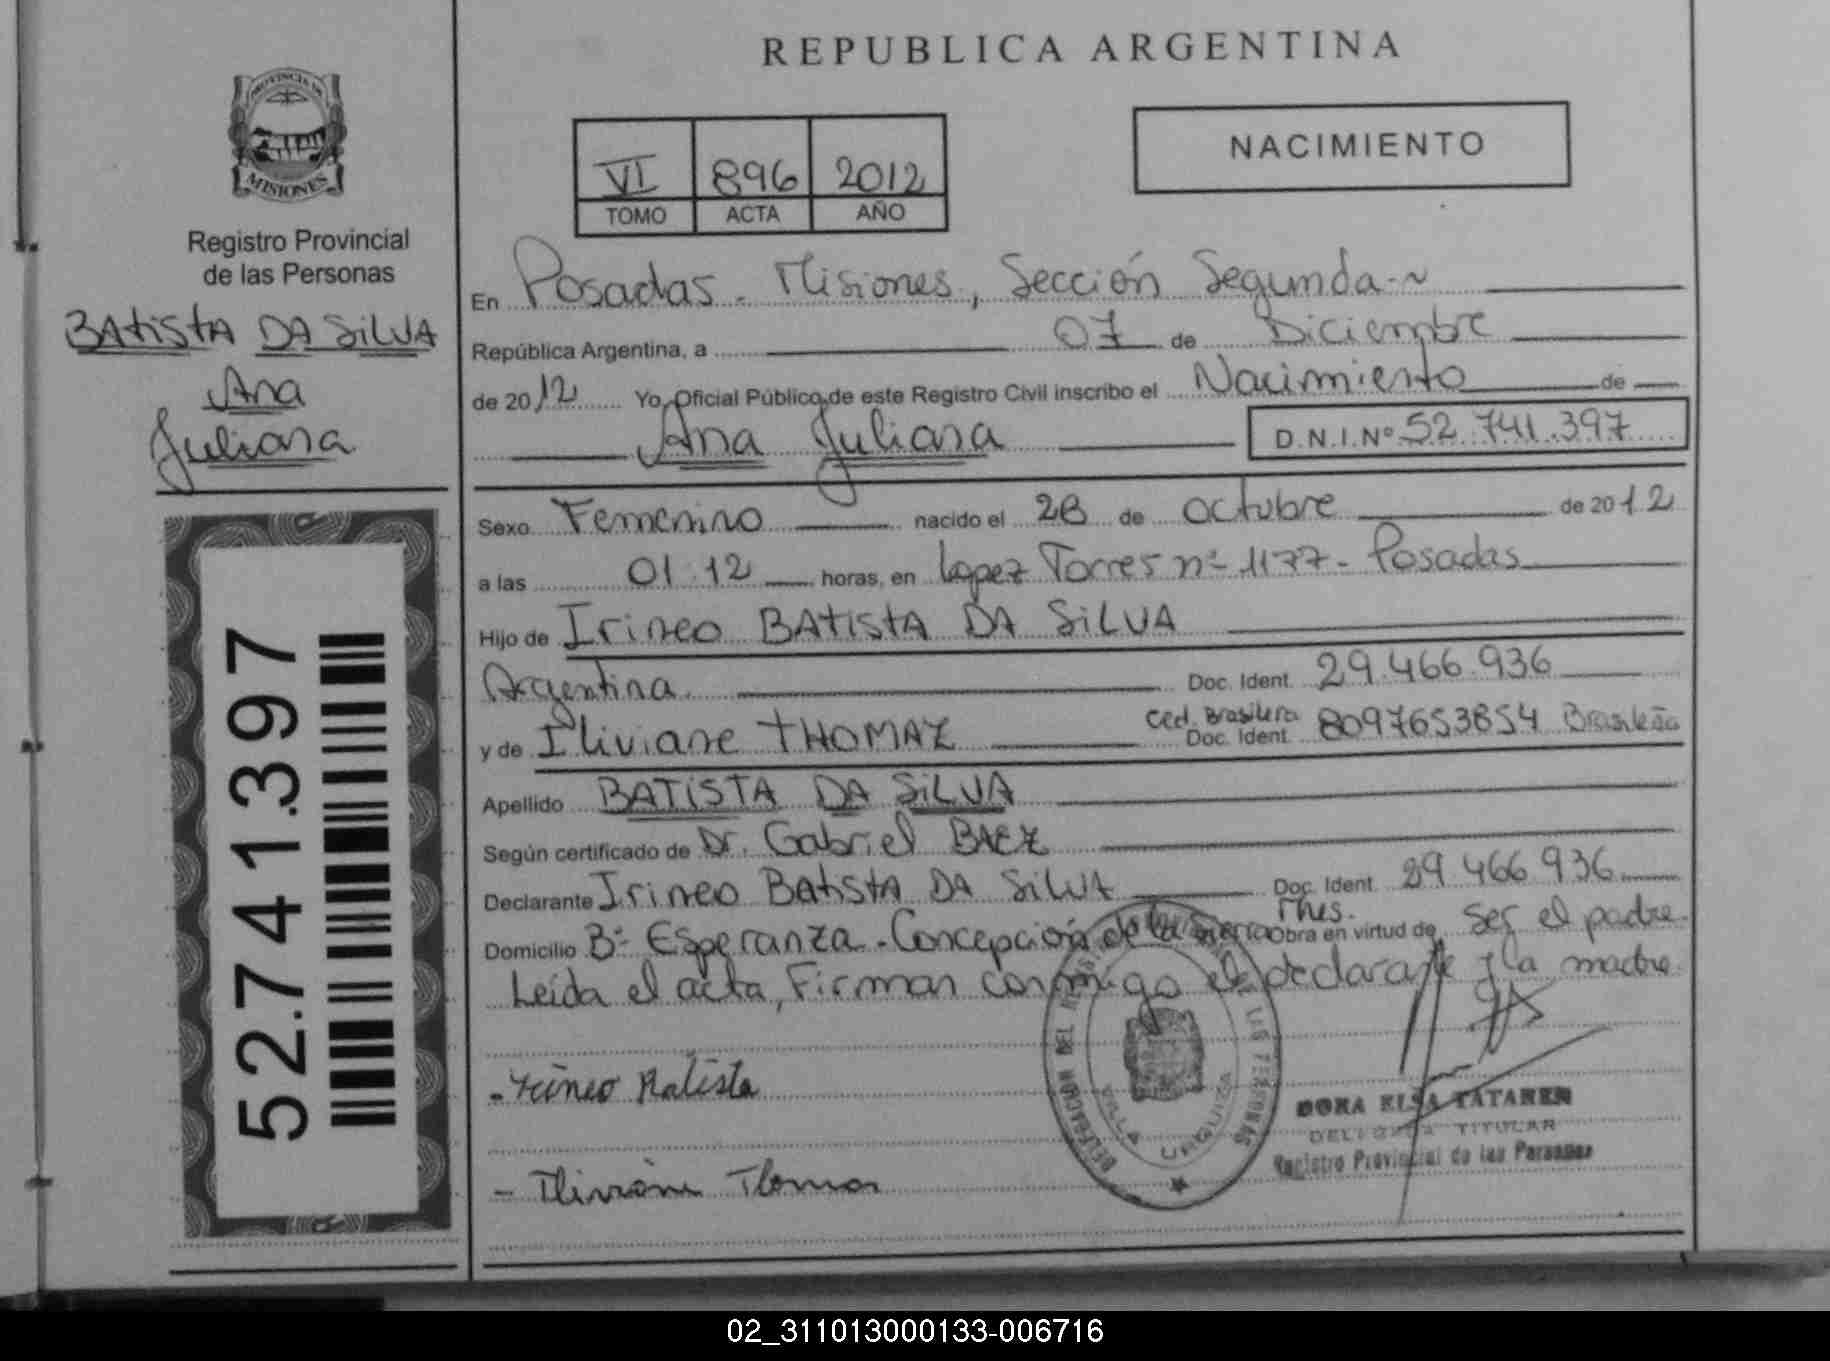 REPUBLICA ARGENTINA
PROVINCIA DE
MISIONES
Registro Provincial
de las Personas
BAtistA DA SiLVA
Ana
Juliana
52.741.397
VI 896 2012
TOMO ACTA AÑO
NACIMIENTO
En Posadas - Misiones, Sección Segunda
República Argentina, a 07 de Diciembre
de 2012 Yo, Oficial Público de este Registro Civil inscribo el Nacimiento de
Ana Juliana D.N.I.Nº 52.741.397
Sexo Femenino nacido el 28 de octubre de 2012
a las 01:12 horas, en Lopez Torres nº 1177 - Posadas
Hijo de Irineo BAtistA DA SiLVA
Argentina Doc. Ident. 29.466.936
y de Iliviane THOMAZ Ced. Brasilera Doc. Ident. 8097653854 Brasileña
Apellido BATiSTA DA SiLVA
Según certificado de Dr. Gabriel BAEZ
Declarante Irineo BatistA DA SiLVA Doc. Ident. 29.466.936
Domicilio Bº Esperanza - Concepción de la Sierra Mnes. Obra en virtud de ser el padre.
Leída el acta, Firman conmigo el declarante y la madre.
Irineo Batista
DELEGACIÓN DEL REGISTRO PROVINCIAL DE LAS PERSONAS
VILLA URQUIZA
DORA ELSA TATAREN
DELEGADA TITULAR
Registro Provincial de las Personas
02_311013000133-006716